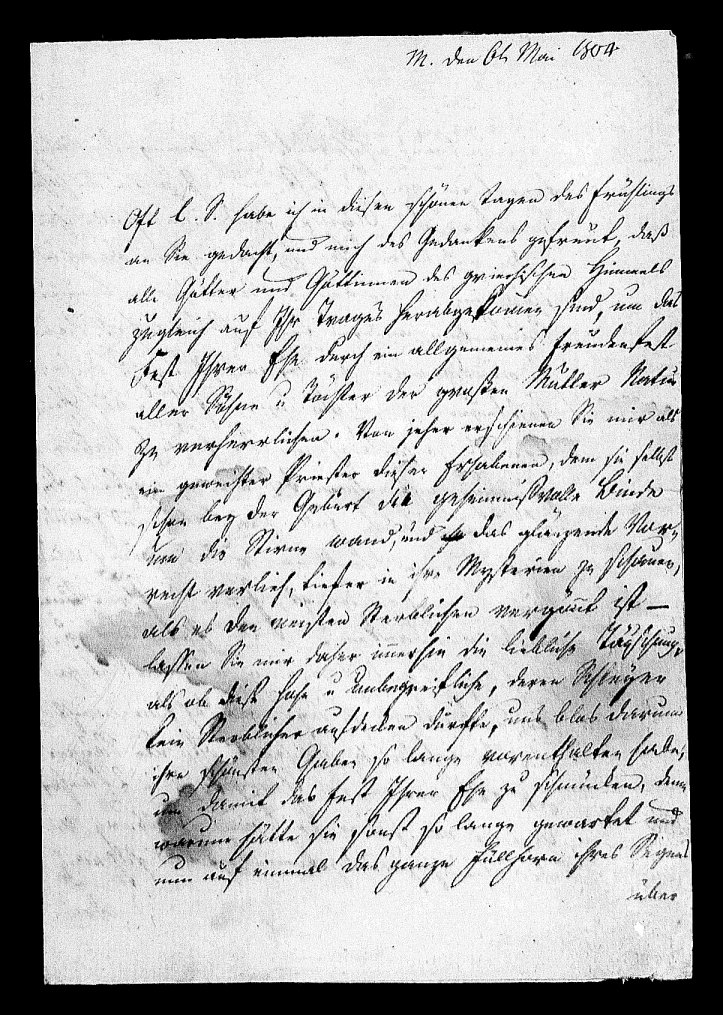 M. den 6t Mai 1804
Oft l. S. habe ich in diesen schönen Tagen des Frühlings
an Sie gedacht, und mich des Gedankens gefreut, daß
alle Götter und Göttinnen des griechischen Himmels
zugleich auf Ihr Trages herabgekommen sind, um das
Fest Ihrer Ehe durch ein allgemeines Freudenfest
aller Söhne u Töchter der großen Mutter Natur
zu verherrlichen. Von jeher erschienen Sie mir als
ein geweihter Priester dieser Erhabenen, dem sie selbst
schon bey der Geburt die geheimnißvolle Binde
um die Stirne wand, und das glänzende Vor-
recht verlieh, tiefer in ihre Mysterien zu schauen,
als es den meisten Sterblichen vergönnt ist —
lassen Sie mir daher immerhin die liebliche Täuschung,
als ob diese hohe u unbegreifliche, deren Schleyer
kein Sterblicher aufdecken durfte, uns blos darum
ihre schönsten Gaben so lange vorenthalten habe,
um damit das Fest Ihrer Ehe zu schmücken, denn
warum hätte sie sonst so lange gewartet und
nun auf einmal das ganze Füllhorn ihres Segens
über